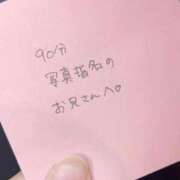 90分
写真指名の
お兄さんへ。